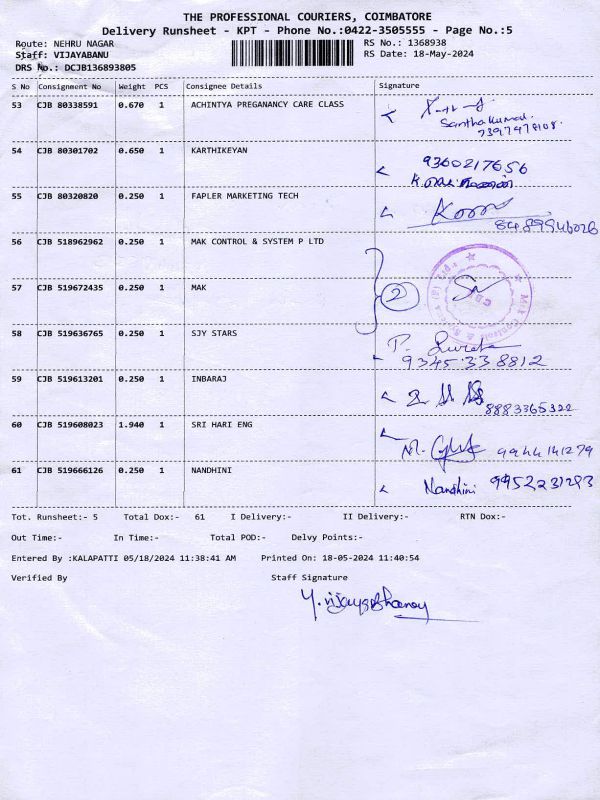 THE PROFESSIONAL COURIERS, COIMBATORE
Delivery Runsheet - KPT - Phone No.:0422-3505555 - Page No.:5
Route: NEHRU NAGAR RS No.: 1368938
Staff: VIJAYABANU RS Date: 18-May-2024
DRS No.: DCJB136893805
S No Consignment No Weight PCS Consignee Details Signature
53 CJB 80338591 0.670 1 ACHINTYA PREGANANCY CARE CLASS
Santhakumar.
54 CJB 80301702 0.650 1 KARTHIKEYAN 9360217656
55 CJB 80320820 0.250 1 FAPLER MARKETING TECH
8489946026
56 CJB 518962962 0.250 1 MAK CONTROL & SYSTEM P LTD
57 CJB 519672435 0.250 1 MAK 2
58 CJB 519636765 0.250 1 SJY STARS
9345338812
59 CJB 519613201 0.250 1 INBARAJ
8883365322
60 CJB 519608023 1.940 1 SRI HARI ENG
9944141279
61 CJB 519666126 0.250 1 NANDHINI Nandhini 9952231293
Tot. Runsheet:- 5 Total Dox:- 61 I Delivery:- II Delivery:- RTN Dox:-
Out Time:- In Time:- Total POD:- Delvy Points:-
Entered By :KALAPATTI 05/18/2024 11:38:41 AM Printed On: 18-05-2024 11:40:54
Verified By Staff Signature